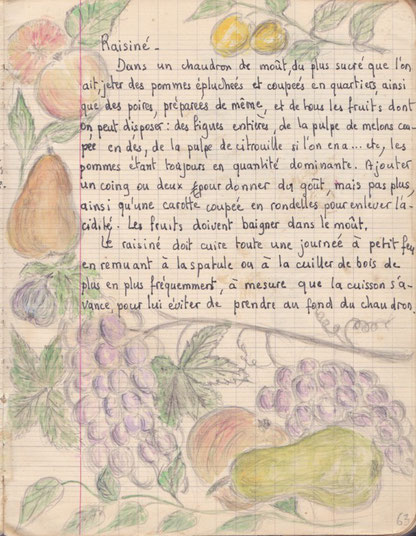 Raisiné -
Dans un chaudron de moût, du plus sucré que l'on
ait, jeter des pommes épluchées et coupées en quartiers ainsi
que des poires, préparées de même, et de tous les fruits dont
on peut disposer : des figues entières, de la pulpe de melons cou
pée en dés, de la pulpe de citrouille si l'on en a... etc, les
pommes étant toujours en quantité dominante. Ajouter
un coing ou deux pour donner du goût, mais pas plus
ainsi qu'une carotte coupée en rondelles pour enlever l'a-
cidité. Les fruits doivent baigner dans le moût.
Le raisiné doit cuire toute une journée à petit feu
en remuant à la spatule ou à la cuiller de bois de
plus en plus fréquemment, à mesure que la cuisson s'a-
vance, pour lui éviter de prendre au fond du chaudron.
63